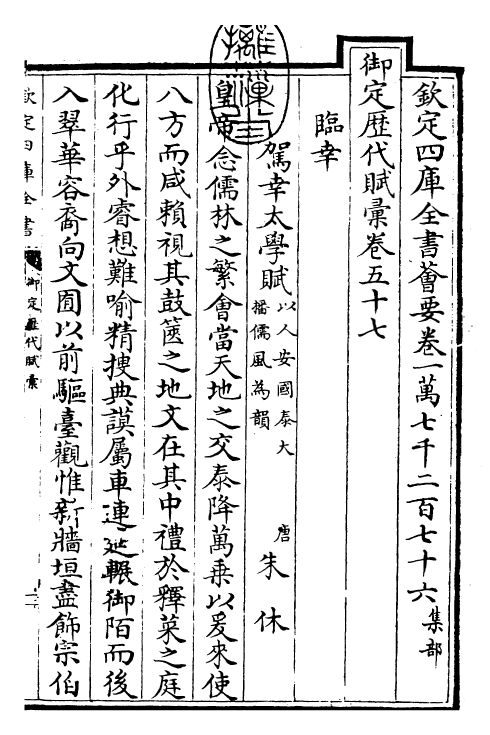 欽定四庫全書薈要卷一萬七千二百七十六集部
御定歷代賦彙卷五十七
臨幸
駕幸太學賦以人安國泰大播儒風為韻 唐朱休
皇帝念儒林之繁會當天地之交泰降萬乗以爰來使
八方而咸賴視其鼓篋之地文在其中禮於釋菜之庭
化行乎外睿想難喻精搜典謨屬車連延輾御陌而後
入翠華容裔向文囿以前驅臺觀惟新牆垣盡飾宗伯
欽定四庫全書 御定歷代賦彙